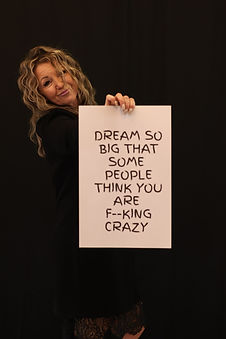 DREAM SO
BIG THAT
SOME
PEOPLE
THINK YOU
ARE
F--KING
CRAZY